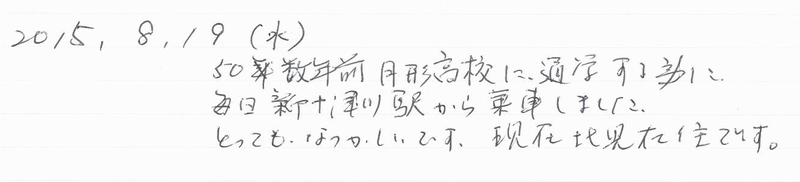 2015, 8, 19 (水)
50年数年前 月形高校に、通学する為に、
毎日新十津川駅から乗車しました、
とってもなつかしいです、現在北見在住です。